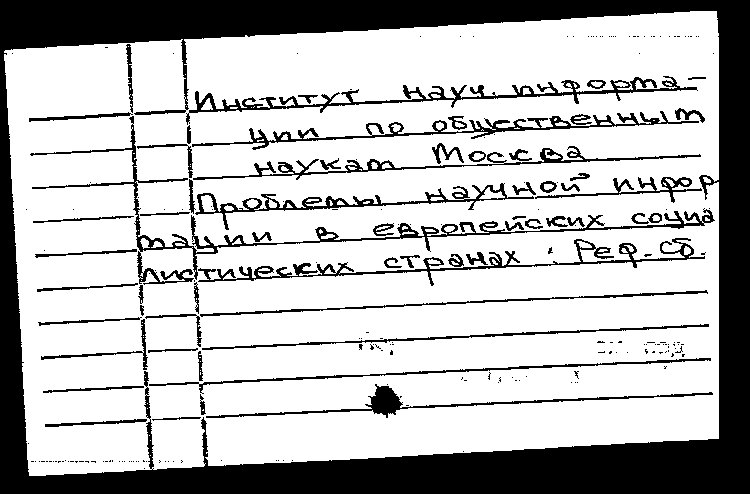 Институт науч. информа-
ции по общественным
наукам Москва
Проблемы научной инфор
мации в европейских социа
листических странах : Реф. сб.